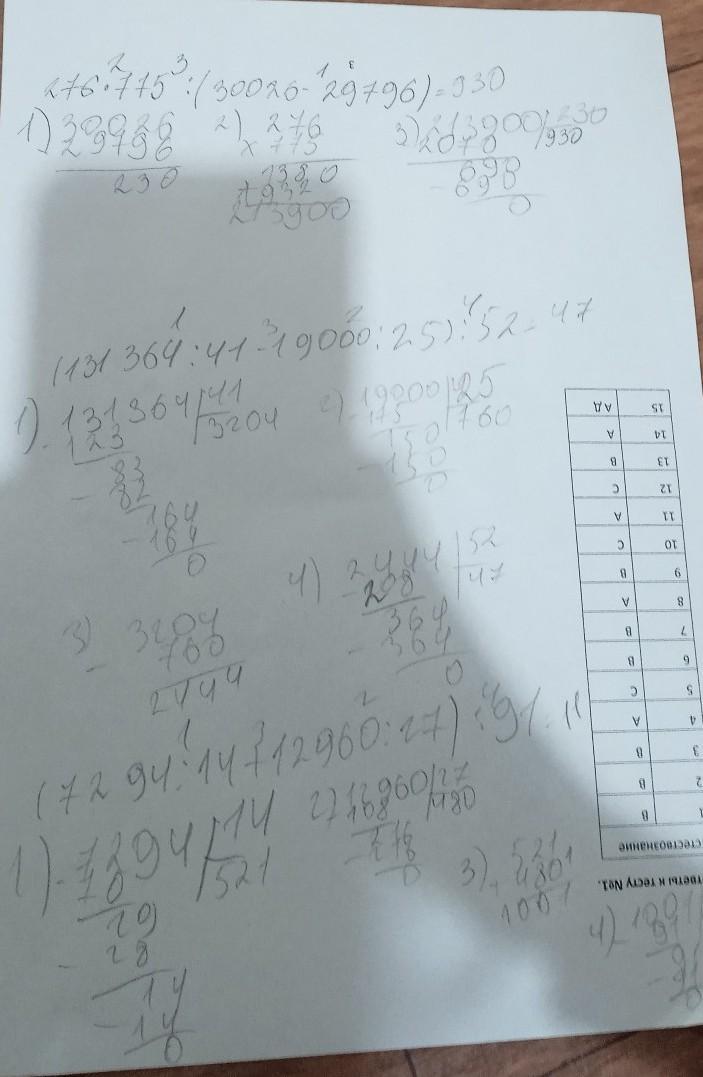 276·775:(30026-29796)=930
1) 30026
29796
230
2) 276
× 775
1380
+1932
213900
3) 213900 | 230
2070 | 930
690
- 690
0
(131364:41-19000:25):52=47
1) 131364 | 41
- 123 | 3204
83
- 82
164
- 164
0
2) 19000 | 25
- 175 | 760
150
- 150
0
3) 3204
- 760
2444
4) 2444 | 52
- 208 | 47
364
- 364
0
(7294:14+12960:27):91=11
1) 7294 | 14
- 70 | 521
29
- 28
14
- 14
0
2) 12960 | 27
- 108 | 480
216
0
3) 521
+ 480
1001
4) 1001
91
- 91
0
тветы к тесту №1.
стествознание
1 B
2 B
3 B
4 A
5 C
6 B
7 B
8 A
9 B
10 C
11 A
12 C
13 B
14 A
15 АД